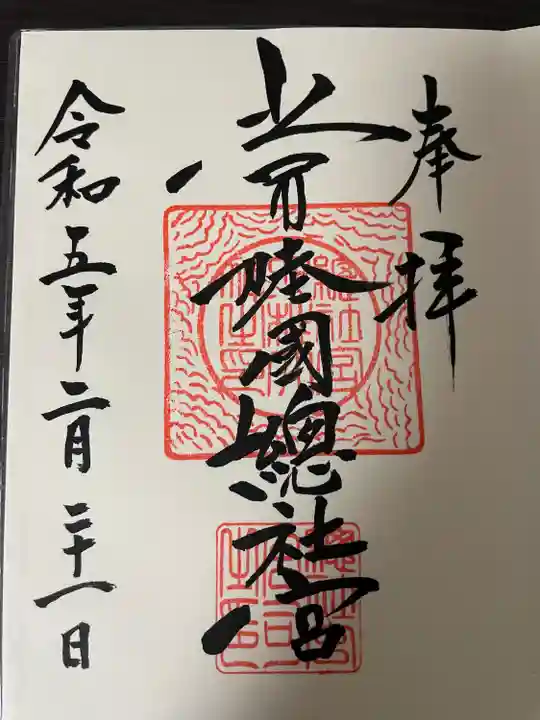 奉拝
常陸國總社宮
令和五年二月二十一日